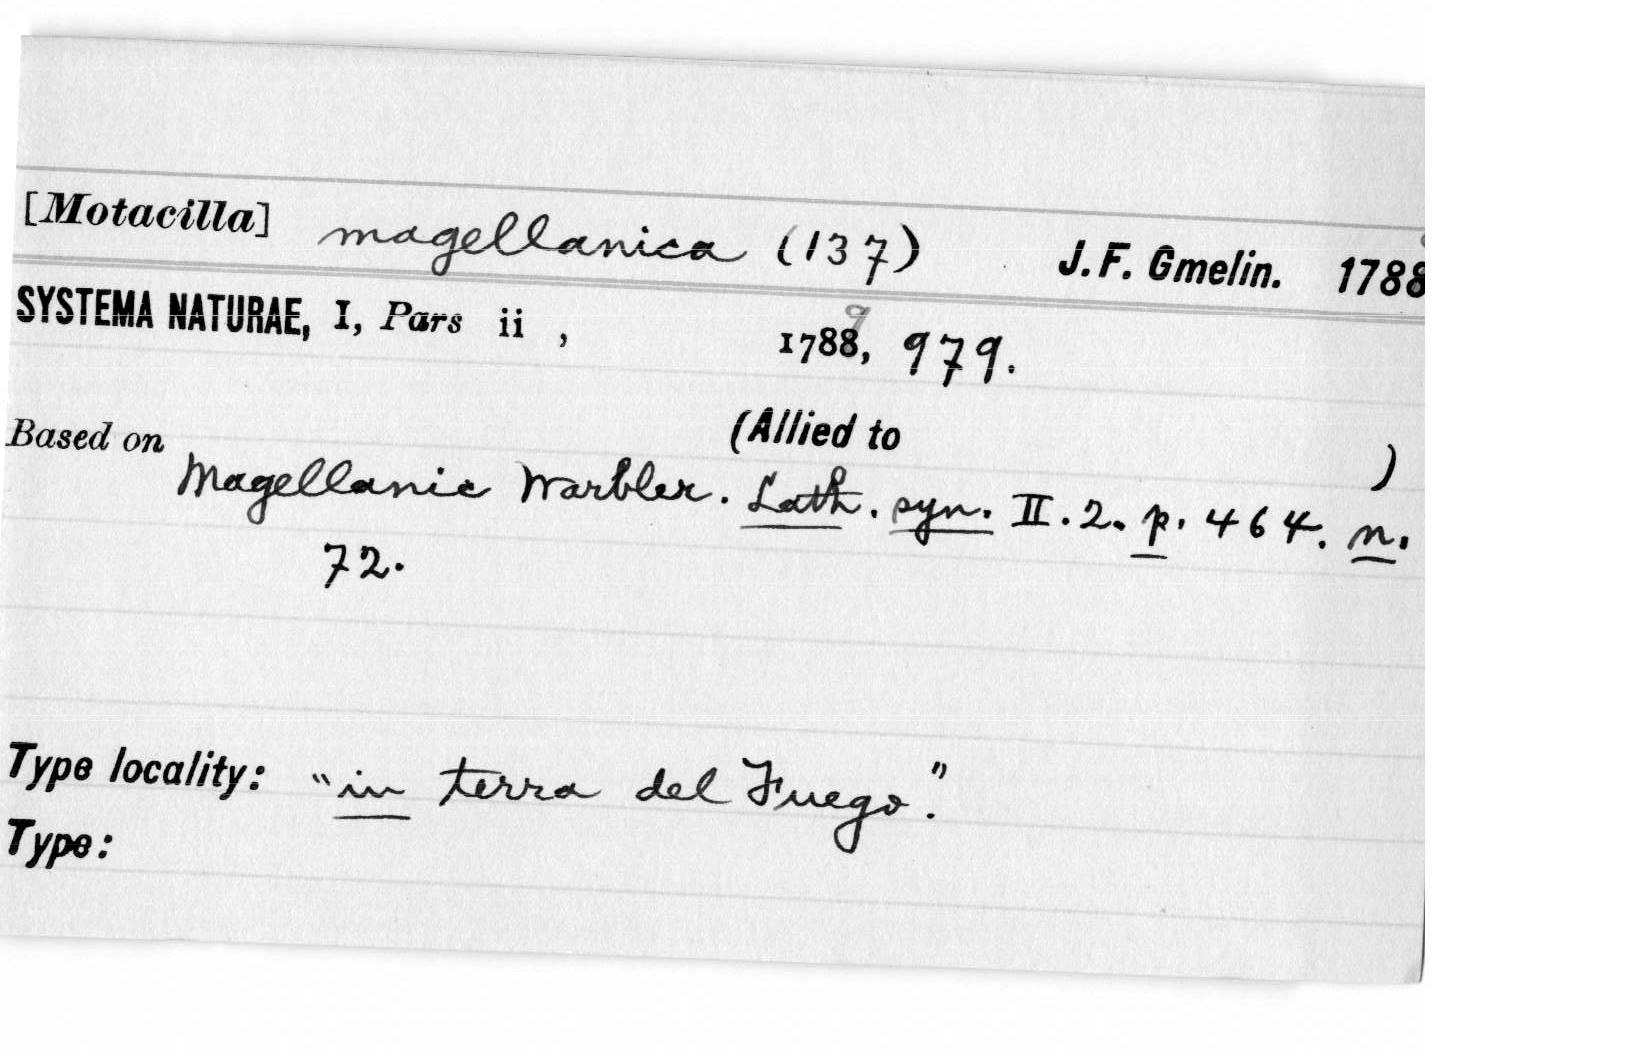 [Motacilla] magellanica (137) J. F. Gmelin. 1788
SYSTEMA NATURAE, I, Pars ii , 1788, 979.
9
Based on (Allied to )
Magellanic Warbler. Lath. syn. II. 2. p. 464. n.
72.
Type locality: "in terra del Fuego."
Type: